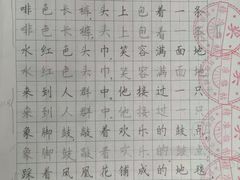 啡色长裤,头上包着一条
啡色长裤,头上包着一条
水红色头巾,笑容满面地
水红色头巾,笑容满面地
来到人群中,他接过一只
来到人群中,他接过一只
象脚鼓,敲着欢乐的鼓点
象脚鼓,敲着欢乐的鼓点
踩着凤凰花铺成的地毯